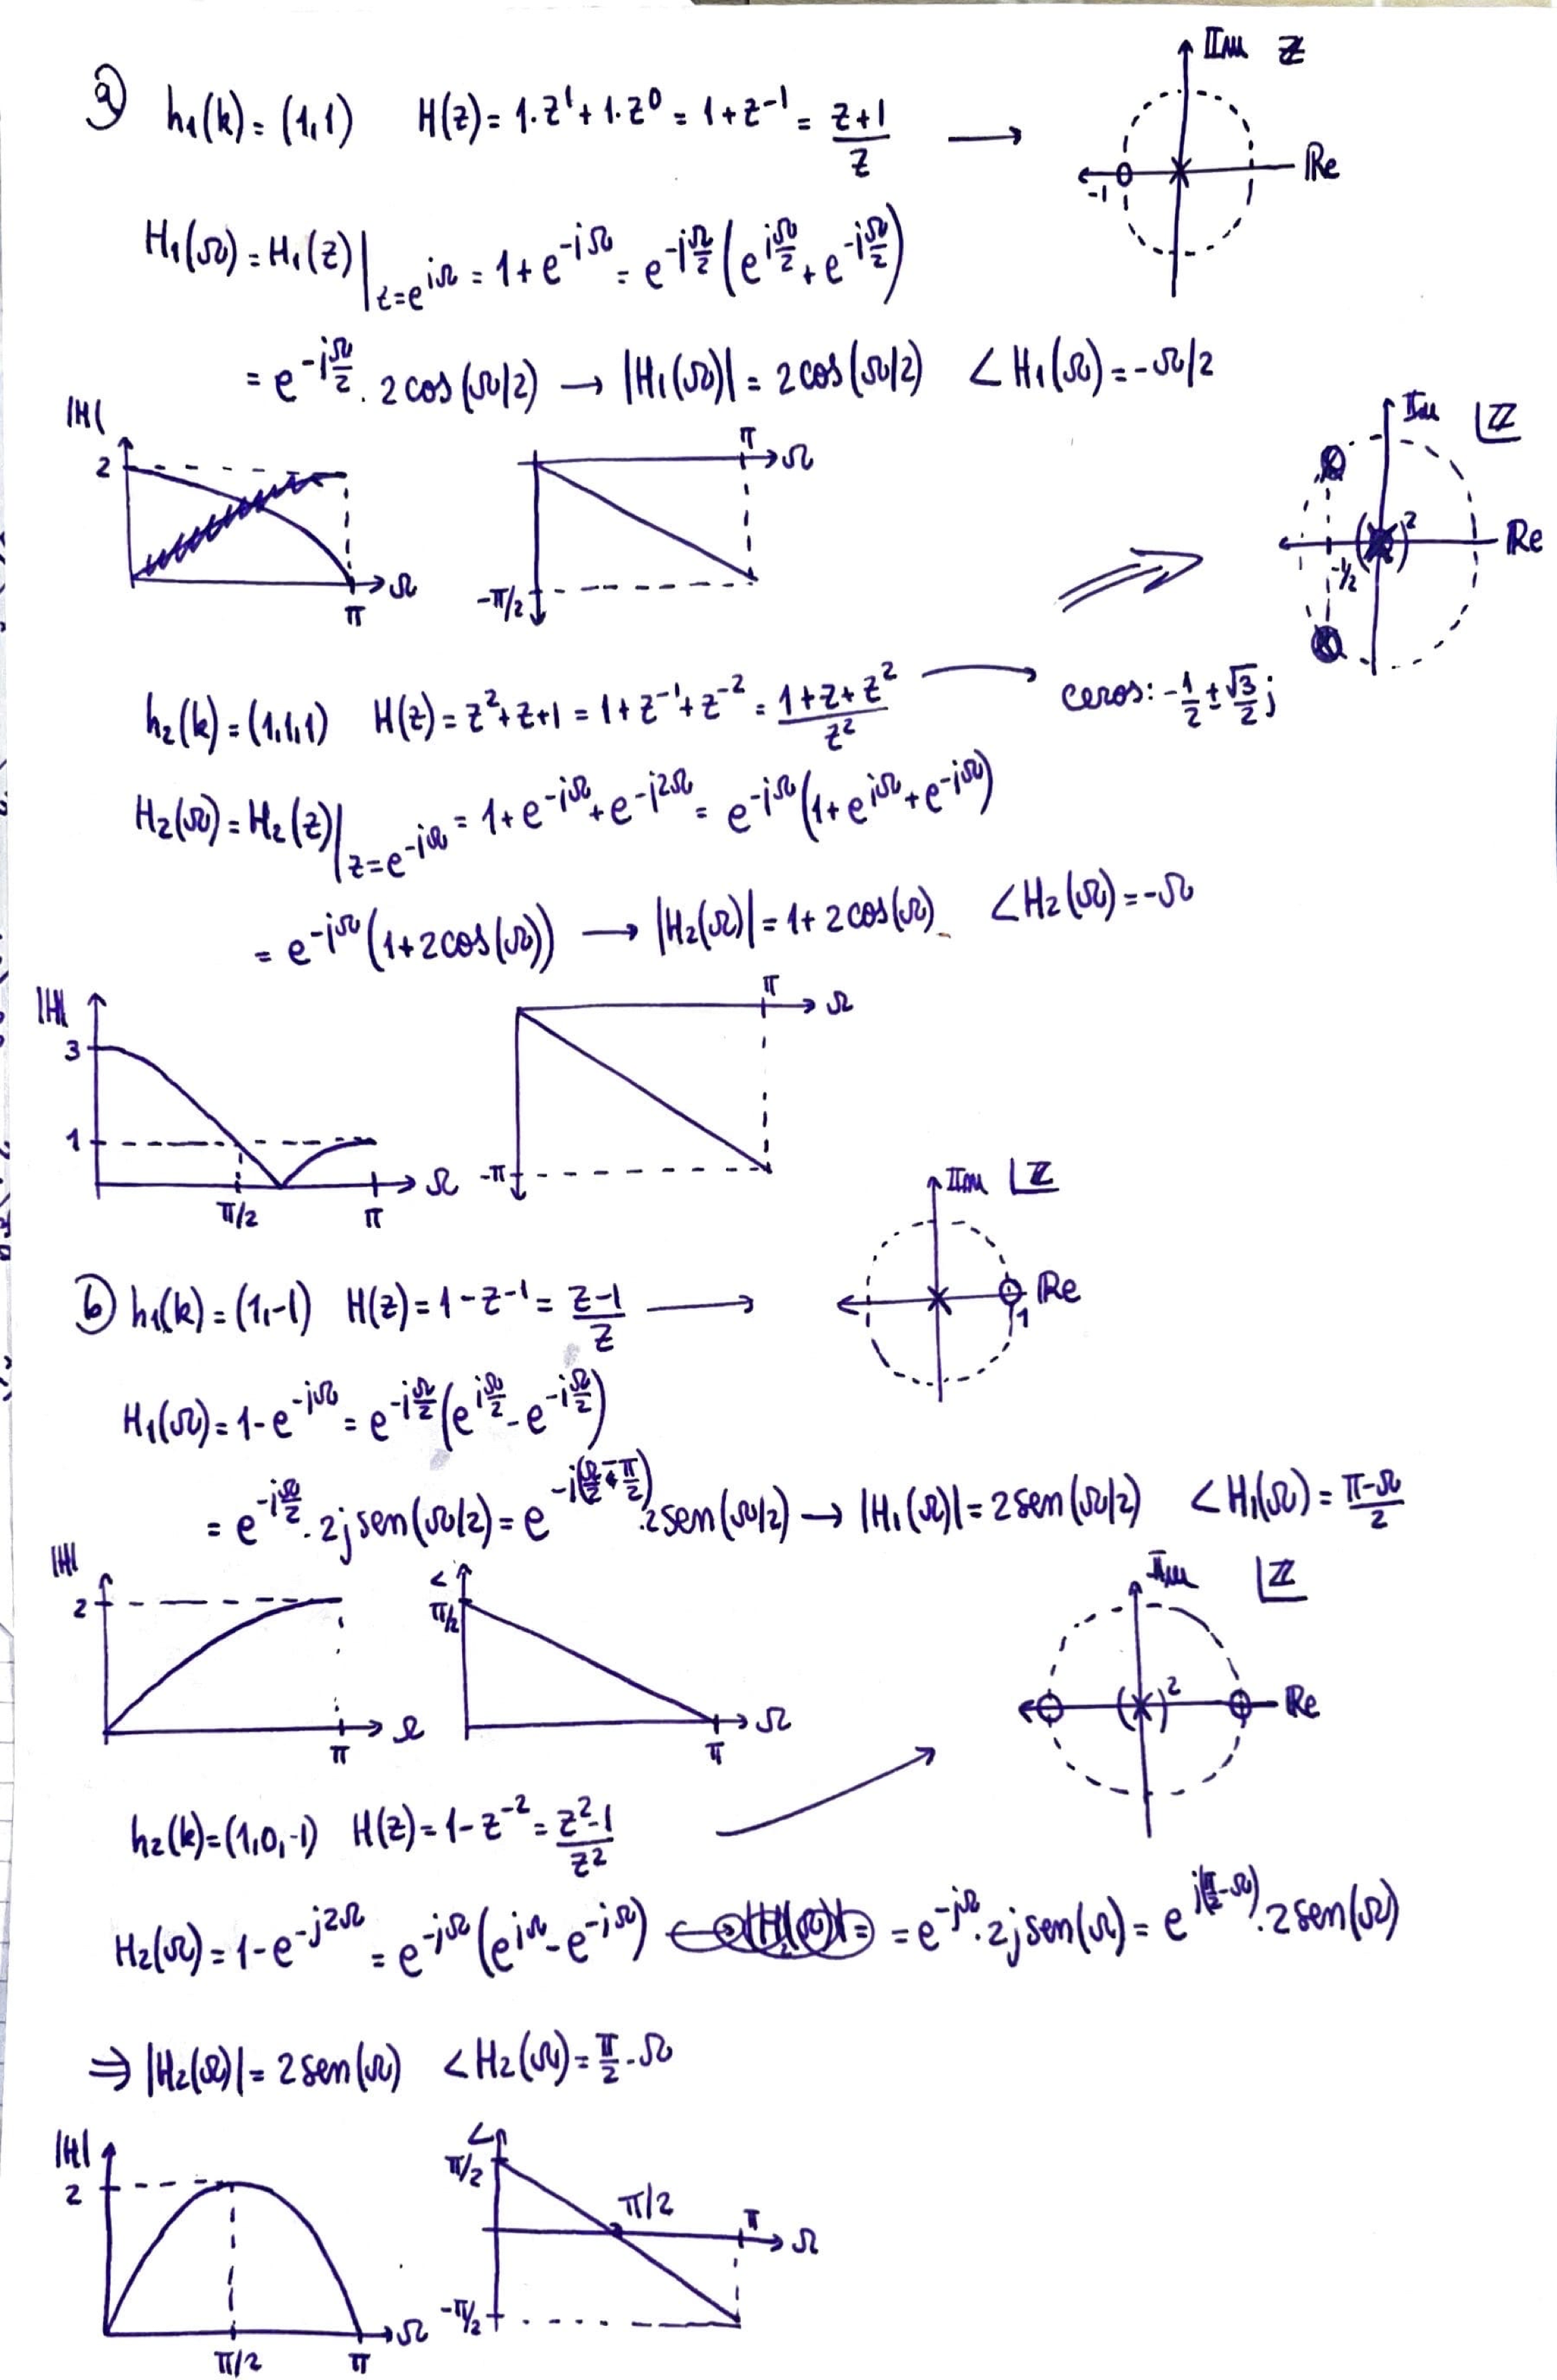 a) h₁(k) = (1,1) H(z) = 1·z¹ + 1·z⁰ = 1 + z⁻¹ = (z+1)/z → Im Z
Re
-1
H₁(Ω) = H₁(z)|_{z=e^{jΩ}} = 1 + e^{-jΩ} = e^{-jΩ/2} (e^{jΩ/2} + e^{-jΩ/2})
= e^{-jΩ/2} · 2cos(Ω/2) → |H₁(Ω)| = 2cos(Ω/2) ∠H₁(Ω) = -Ω/2
|H| 2 Ω π
π Ω -π/2
Im Z
( )² Re
-1/2
h₂(k) = (1,1,1) H(z) = z² + z + 1 = 1 + z⁻¹ + z⁻² = (1+z+z²)/z² → ceros: -1/2 ± √3/2 j
H₂(Ω) = H₂(z)|_{z=e^{-jΩ}} = 1 + e^{-jΩ} + e^{-j2Ω} = e^{-jΩ} (1 + e^{jΩ} + e^{-jΩ})
= e^{-jΩ} (1 + 2cos(Ω)) → |H₂(Ω)| = 1 + 2cos(Ω) ∠H₂(Ω) = -Ω
|H| 3 1 π/2 π Ω
π Ω -π
Im Z
Re
1
b) h₁(k) = (1,-1) H(z) = 1 - z⁻¹ = (z-1)/z →
H₁(Ω) = 1 - e^{-jΩ} = e^{-jΩ/2} (e^{jΩ/2} - e^{-jΩ/2})
= e^{-jΩ/2} · 2j sen(Ω/2) = e^{-j(Ω/2 - π/2)} · 2sen(Ω/2) → |H₁(Ω)| = 2sen(Ω/2) ∠H₁(Ω) = (π-Ω)/2
|H| 2 π Ω
∠ π/2 π Ω
Im Z
(×)² Re
h₂(k) = (1,0,-1) H(z) = 1 - z⁻² = (z²-1)/z²
H₂(Ω) = 1 - e^{-j2Ω} = e^{-jΩ} (e^{jΩ} - e^{-jΩ}) = e^{-jΩ} · 2j sen(Ω) = e^{j(π/2 - Ω)} · 2sen(Ω)
⇒ |H₂(Ω)| = 2sen(Ω) ∠H₂(Ω) = π/2 - Ω
|H| 2 π/2 π Ω
∠ π/2 π/2 π Ω -π/2